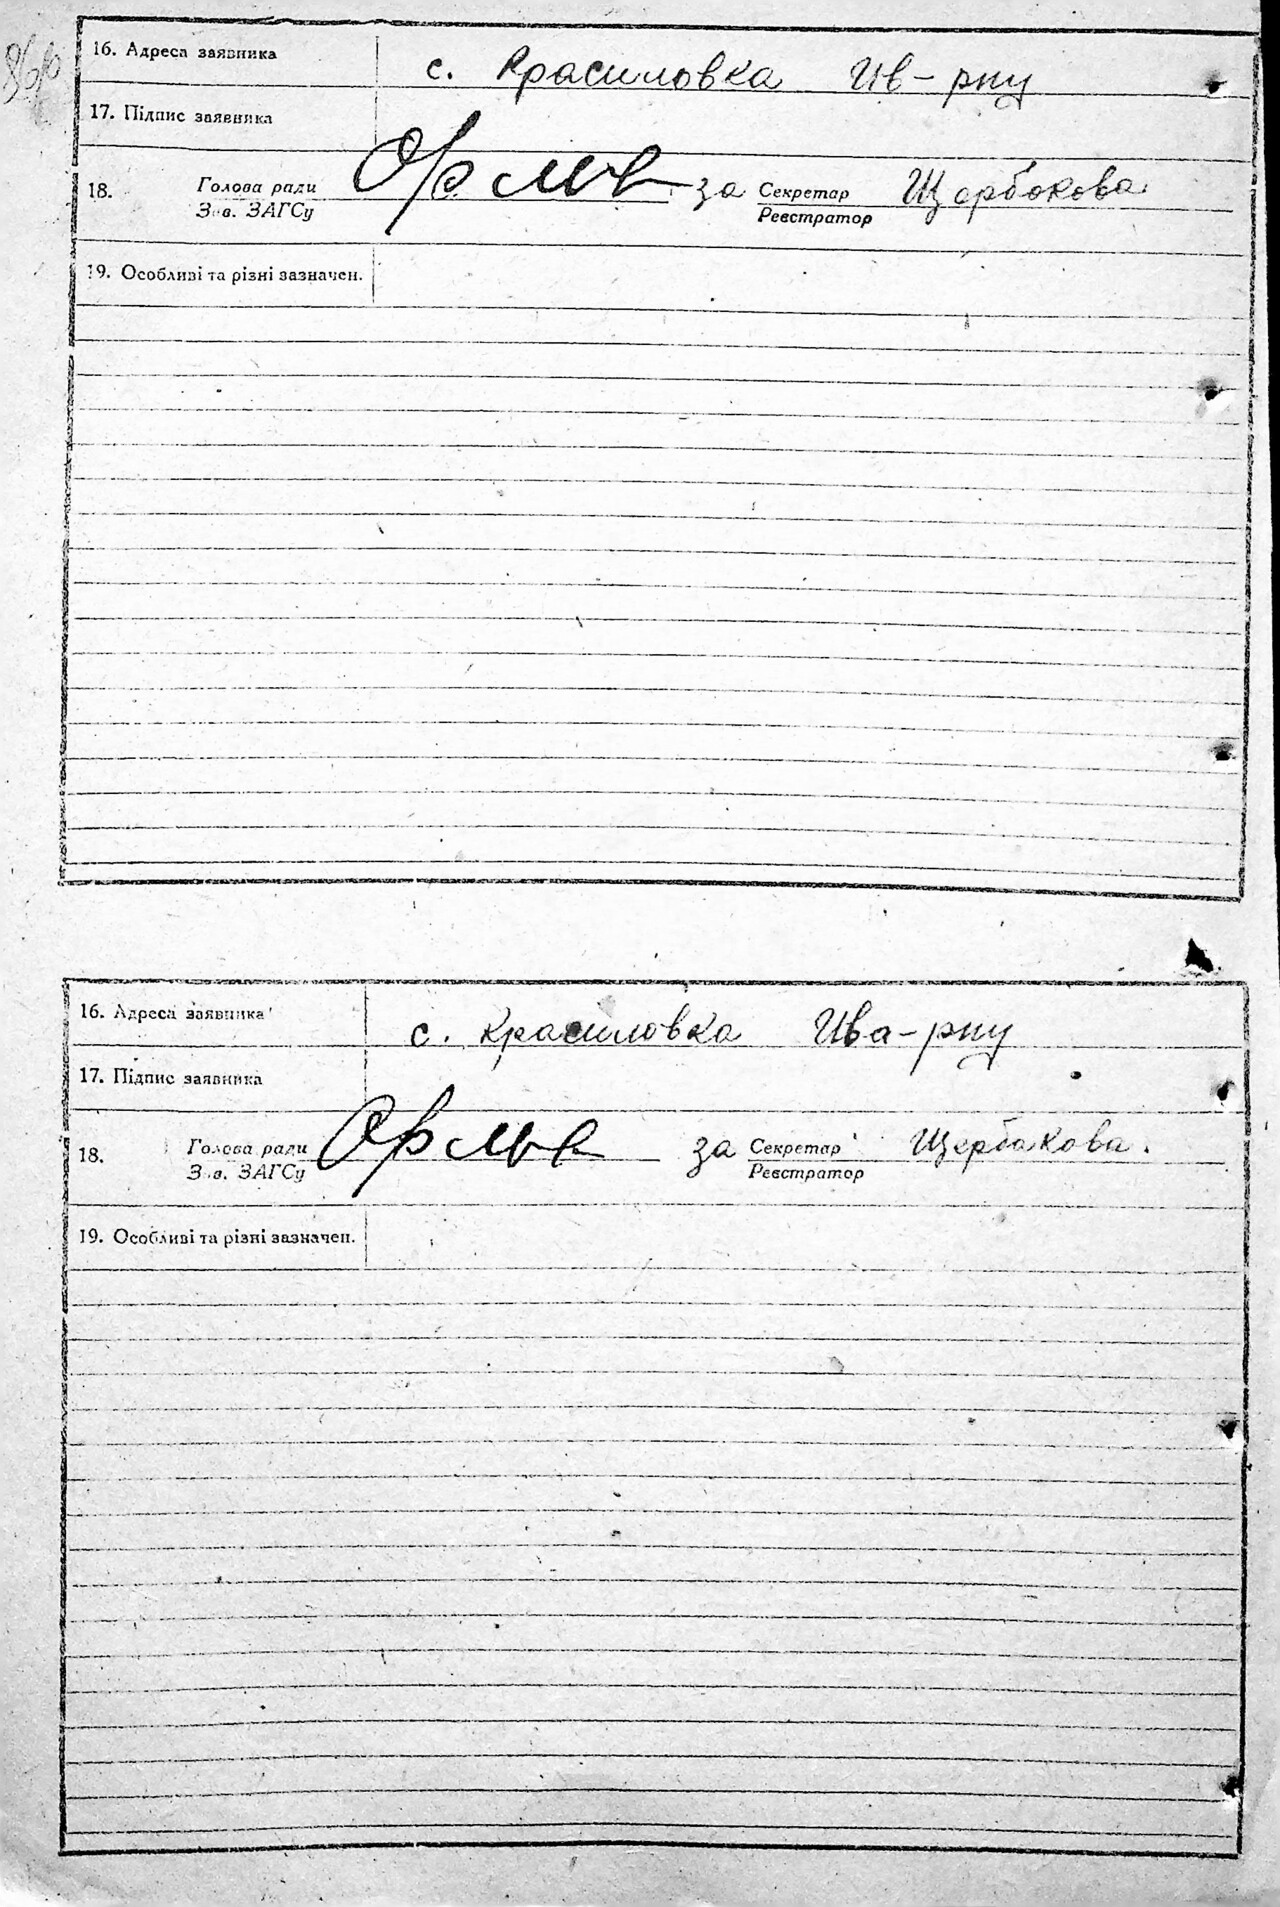 16. Адреса заявника с. Красиловка Ив-рну
17. Підпис заявника
18. Голова ради за Секретар Щербакова
Зав. ЗАГСу Реєстратор
19. Особливі та різні зазначен.
16. Адреса заявника с. Красиловка Ива-рну
17. Підпис заявника
18. Голова ради за Секретар Щербакова.
Зав. ЗАГСу Реєстратор
19. Особливі та різні зазначен.